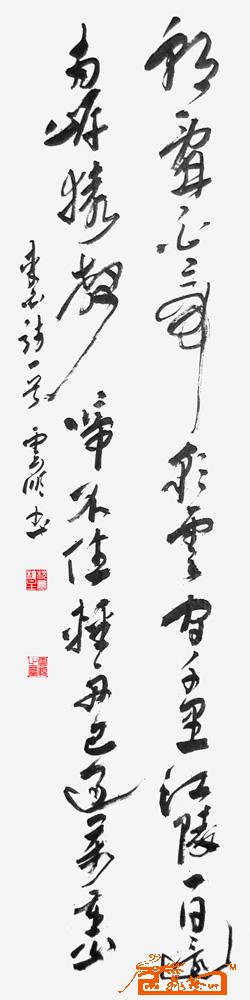 朝辭白帝彩雲間千里江陵一日還
兩岸猿聲啼不住輕舟已過萬重山
李白詩一首 雲 書